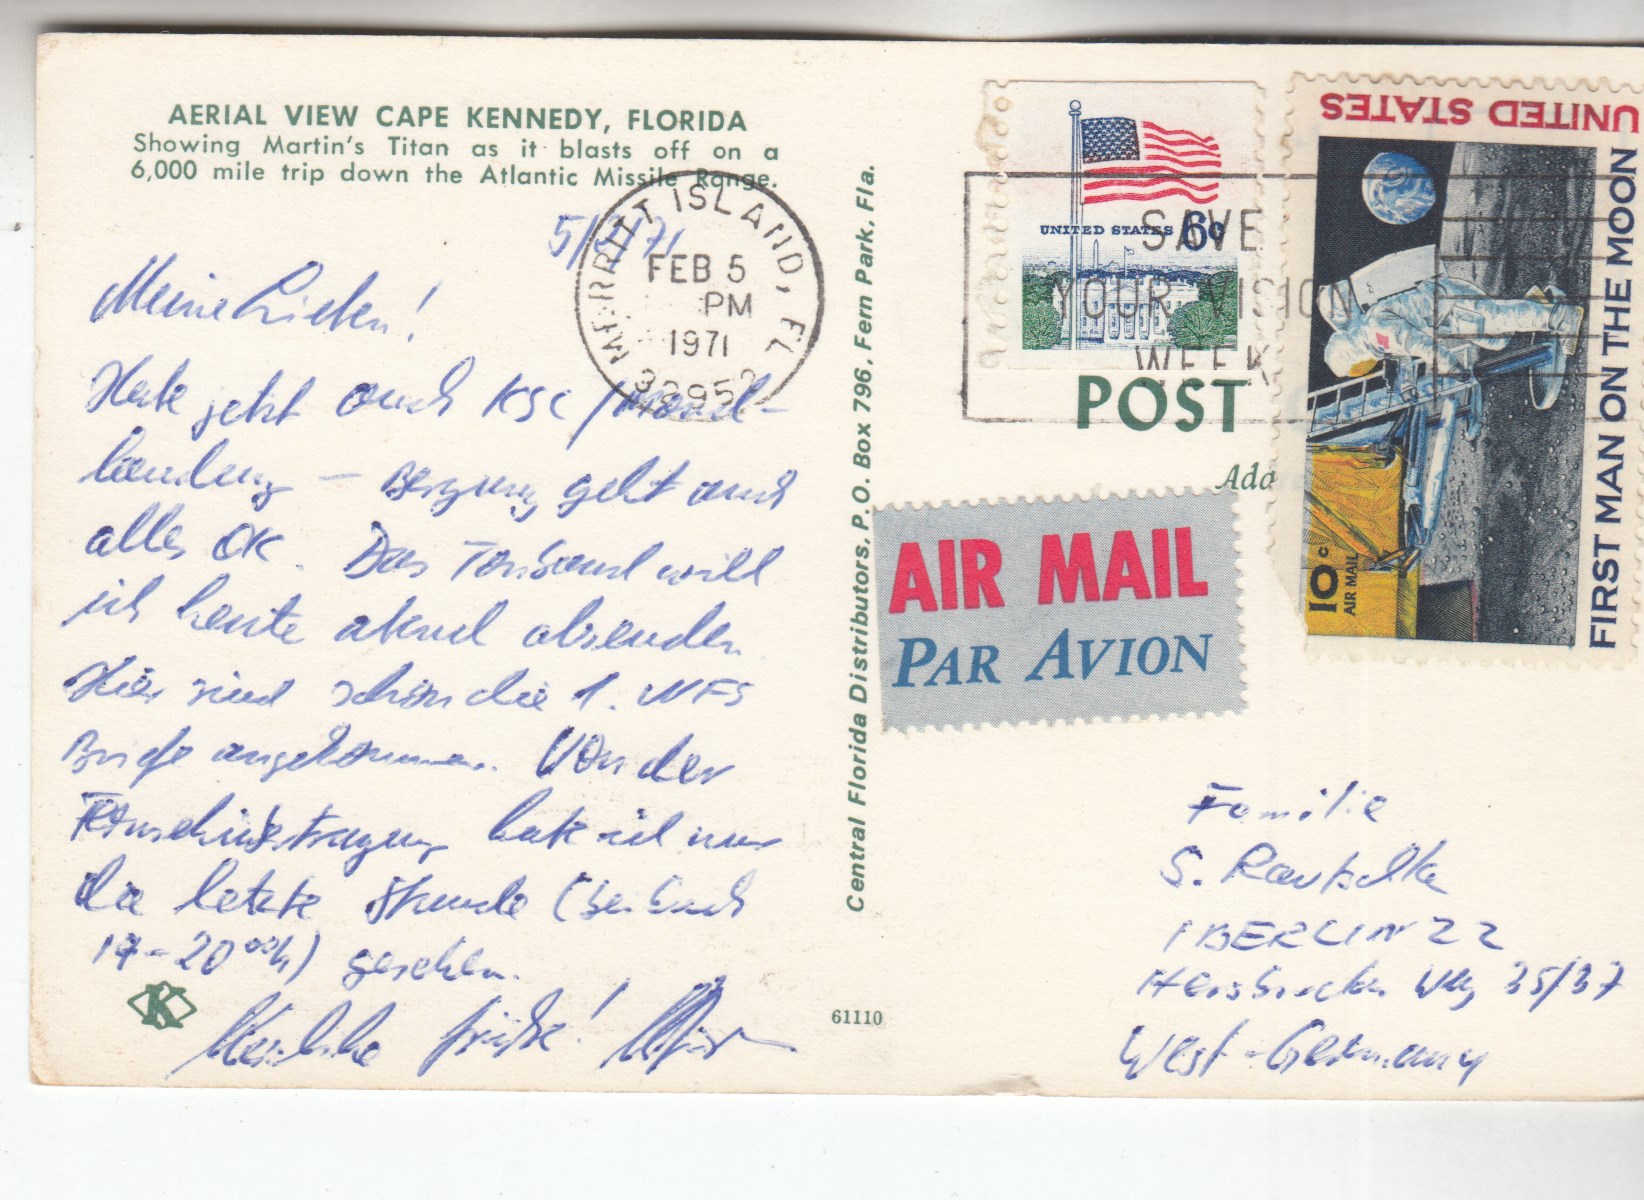 AERIAL VIEW CAPE KENNEDY, FLORIDA
Showing Martin's Titan as it blasts off on a
6,000 mile trip down the Atlantic Missile Range.
5/2/71
Meine Lieben!
Habe jetzt auch KSC / Mond-
landung – Bergung geht auch
alles OK. Das Tonband will
ich heute abend absenden
Hier sind schon die 1. WFS
Briefe angekommen. Von der
Fernsehübertragung habe ich nur
die letzte Stunde (bei Euch
19-20⁰⁰h) gesehen.
Herzliche Grüße!
K
61110
Central Florida Distributors, P.O. Box 796, Fern Park, Fla.
MERRITT ISLAND, FL
FEB 5
PM
1971
32952
SAVE
YOUR VISION
WEEK
UNITED STATES 6c
UNITED STATES
FIRST MAN ON THE MOON
10c
AIR MAIL
POST
Add
AIR MAIL
PAR AVION
Familie
S.
1 BERLIN 22
Hersbrucker Weg 35/37
West-Germany